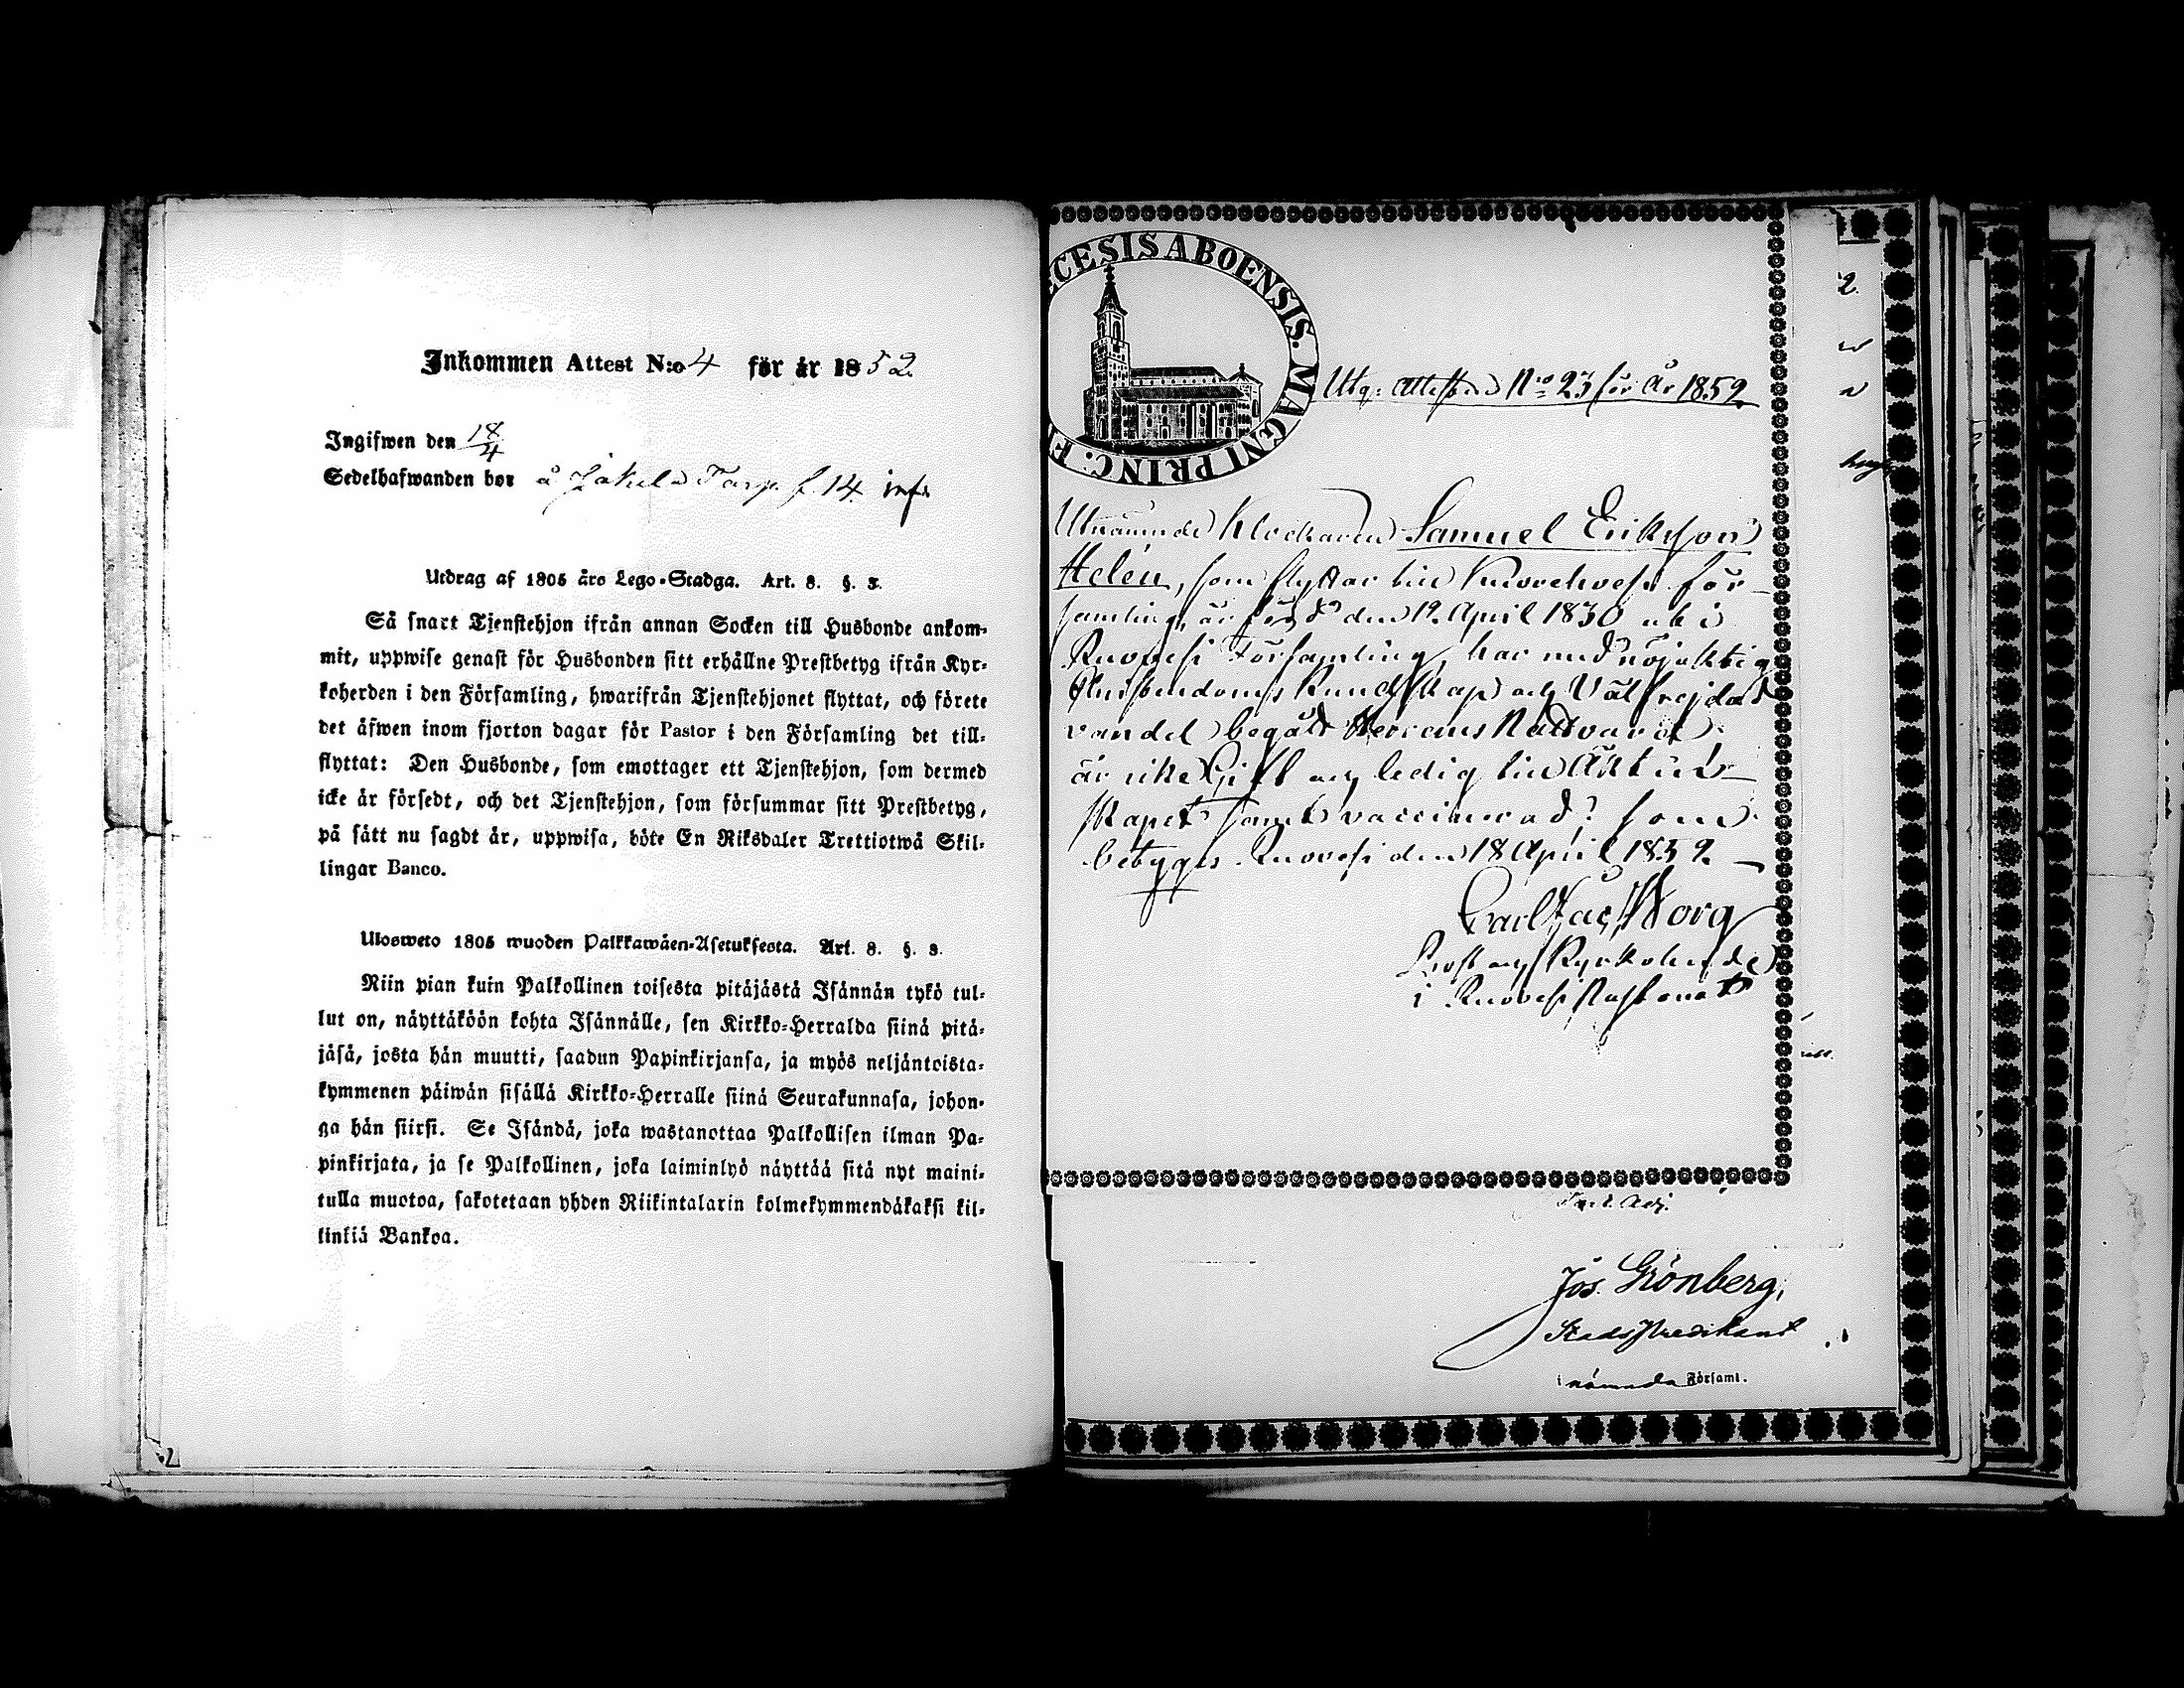 Inkommen Attest N:o 4 för år 1852
Ingifwen den 18/4
Sedelhafwanden bor å Jäkilä Torp f. 14 inf.
Utdrag af 1805 års Lego-Stadga. Art. 8. §. 3.
Så snart Tjenstehjon ifrån annan Socken till Husbonde ankom-
mit, uppwise genast för Husbonden sitt erhållne Prestbetyg ifrån Kyr-
koherden i den Församling, hwarifrån Tjenstehjonet flyttat, och förete
det äfwen inom fjorton dagar för Pastor i den Församling det till-
flyttat: Den Husbonde, som emottager ett Tjenstehjon, som dermed
icke är försedt, och det Tjenstehjon, som försummar sitt Prestbetyg,
på sätt nu sagdt är, uppwisa, böte En Riksdaler Trettiotwå Skil-
lingar Banco.
Ulosweto 1805 wuoden Palkkawäen-Asetuksesta. Art. 8. §. 3.
Niin pian kuin Palkollinen toisesta pitäjästä Isännän tykö tul-
lut on, näyttäköön kohta Isännälle, sen Kirkko-Herralda siinä pitä-
jäsä, josta hän muutti, saadun Papinkirjansa, ja myös neljäntoista-
kymmenen päiwän sisällä Kirkko-Herralle siinä Seurakunnasa, johon-
ga hän siirsi. Se Isändä, joka wastanottaa Palkollisen ilman Pa-
pinkirjata, ja se Palkollinen, joka laiminlyö näyttää sitä nyt maini-
tulla muotoa, sakotetaan yhden Riikintalarin kolmekymmendäkaksi kil-
linkiä Bankoa.
CESIS ABOENSIS. MAGNI PRINC: F
Utg: attesten No 23 för År 1852
Utnämnde Klockaren Samuel Eriksson
Helén, som flyttar till Kuorehvesi för-
samling, är född den 12 April 1830 uti
Ruovesi Församling, har med nöjaktig
Christendoms Kundskap och Välfrejdad
vandel begått Herrans Nattvard
är icke Gift och ledig till Äkten-
skapet samt vaccinerad; som
betygas Ruovesi den 18 April 1852.
Carl Zac. Norrg
Prost och Kyrkoherde
i Ruovesi Pastorat
Jos. Grönberg,
Stads Predikant
i nämnda Församl.